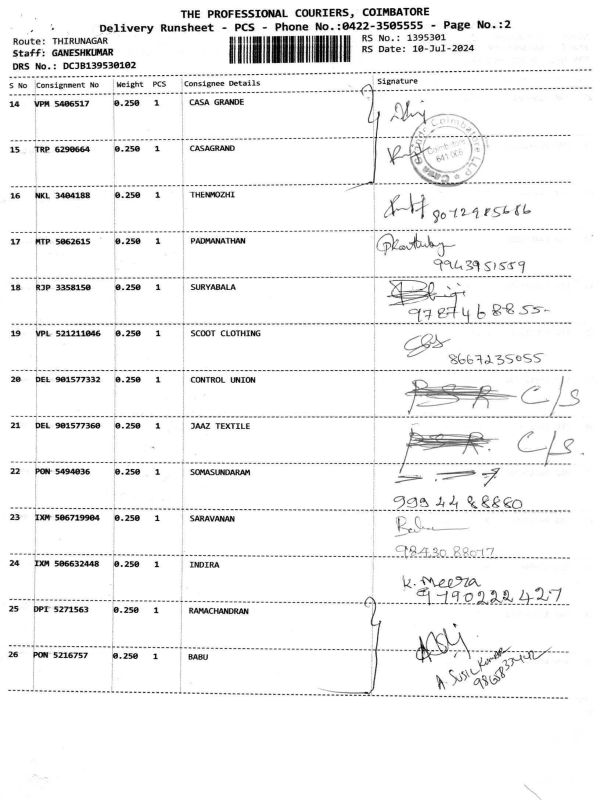 THE PROFESSIONAL COURIERS, COIMBATORE
Delivery Runsheet - PCS - Phone No.:0422-3505555 - Page No.:2
Route: THIRUNAGAR
RS No.: 1395301
Staff: GANESHKUMAR
RS Date: 10-Jul-2024
DRS No.: DCJB139530102
S No Consignment No Weight PCS Consignee Details Signature
14 VPM 5406517 0.250 1 CASA GRANDE
15 TRP 6290664 0.250 1 CASAGRAND
Coimbatore
641 006
16 NKL 3404188 0.250 1 THENMOZHI
8072985686
17 MTP 5062615 0.250 1 PADMANATHAN
9943951559
18 RJP 3358150 0.250 1 SURYABALA
9787468855-
19 VPL 521211046 0.250 1 SCOOT CLOTHING
8667235055
20 DEL 901577332 0.250 1 CONTROL UNION
C/S
21 DEL 901577360 0.250 1 JAAZ TEXTILE
C/S.
22 PON 5494036 0.250 1 SOMASUNDARAM
9994488880
23 IXM 506719904 0.250 1 SARAVANAN
9843088077
24 IXM 506632448 0.250 1 INDIRA
K. Meera
9790222427
25 DPI 5271563 0.250 1 RAMACHANDRAN
26 PON 5216757 0.250 1 BABU
A. Susil Kumar